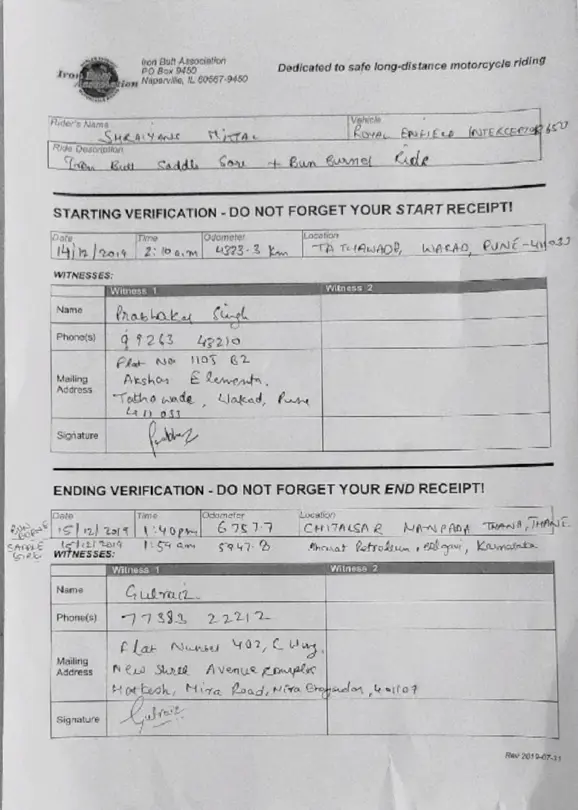 Iron Butt Association
Iron Butt Association
PO Box 9450
Naperville, IL 60567-9450
Dedicated to safe long-distance motorcycle riding
Rider's Name
SHRAIYANS MITTAL
Vehicle
ROYAL ENFIELD INTERCEPTOR 650
Ride Description
Iron Butt Saddle Sore + Bun Burner Ride
STARTING VERIFICATION - DO NOT FORGET YOUR START RECEIPT!
Date Time Odometer Location
14/12/2019 2:10 a.m 4373.3 Km TATHAWADE, WAKAD, PUNE-411033
WITNESSES:
Witness 1 Witness 2
Name
Prabhakar Singh
Phone(s)
99263 48210
Mailing Address
Flat No 1105 B2
Akshar Elementa,
Tathawade, Wakad, Pune
411033
Signature
ENDING VERIFICATION - DO NOT FORGET YOUR END RECEIPT!
Date Time Odometer Location
BUN BURNER 15/12/2019 1:40pm 6757.7 CHITALSAR MANPADA, THANA, THANE
SADDLE SORE 15/12/2019 1:54 am 5947.8 Bharat Petroleum, Karnataka
WITNESSES:
Witness 1 Witness 2
Name
Gulraiz
Phone(s)
77383 22212
Mailing Address
Flat Number 402, C Wing,
New Shree Avenue complex
Hatkesh, Mira Road, 401107
Signature
Gulraiz
Rev 2019-07-31